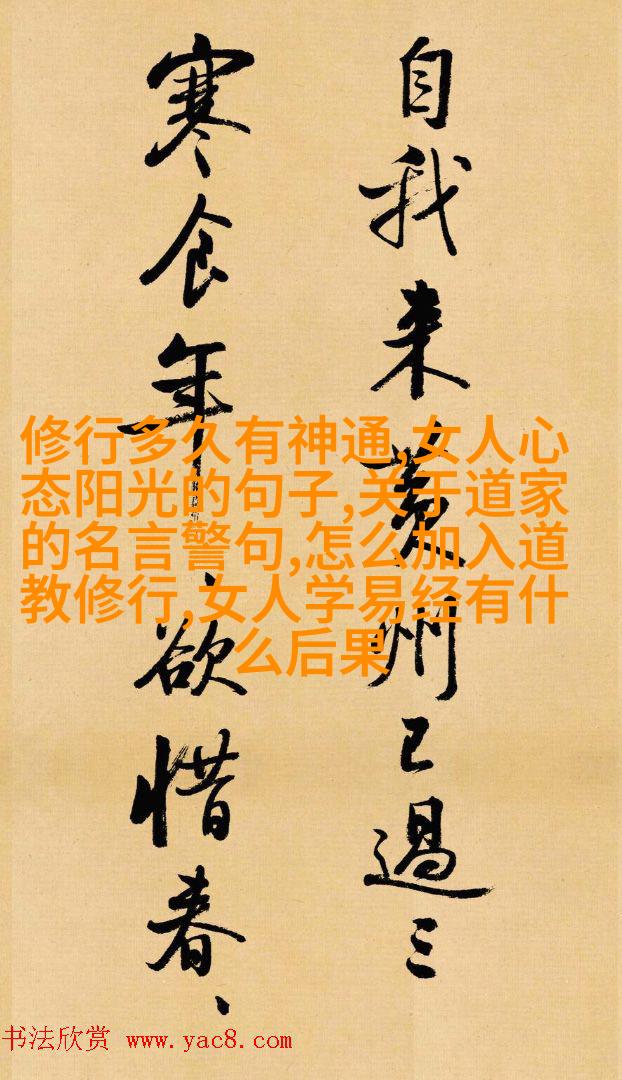 自我来黄州已過三
寒食年、欲惜春、
修行多久有神通,女人心
态阳光的句子,关于道家
的名言警句,怎么加入道
教修行,女人学易经有什
么后果
书法欣赏 www.yac8.com